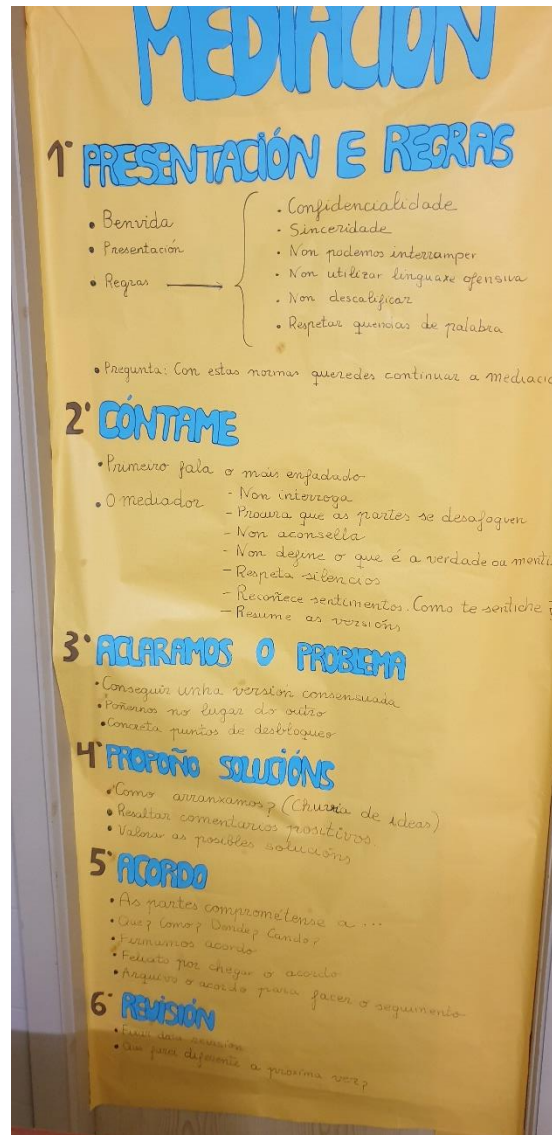 MEDIACIÓN
1º PRESENTACIÓN E REGRAS
• Benvida
• Presentación
• Regras
• Confidencialidade
• Sinceridade
• Non podemos interramper
• Non utilizar linguaxe ofensiva
• Non descalificar
• Respetar quencias de palabra
• Pregunta: Con estas normas queredes continuar a mediació
2º CÓNTAME
• Primeiro fala o máis enfadado
• O mediador
- Non interroga
- Procura que as partes se desafoguen
- Non aconsella
- Non define o que é a verdade ou menti
- Respeta silencios
- Recoñece sentimentos. Como te sentiche ?
- Resume as versións
3º ACLARAMOS O PROBLEMA
• Conseguir unha versión consensuada
• Poñernos no lugar do outro
• Concreta puntos de desbloqueo
4º PROPOÑO SOLUCIÓNS
• Como arranxamos? (Chuvia de ideas)
• Resaltar comentarios positivos
• Valorar as posibles solucións
5º ACORDO
• As partes comprométense a ...
• Que? Como? Donde? Cando?
• Firmamos acordo
• Felicito por chegar o acordo
• Arquivo o acordo para facer o seguimento
6º REVISIÓN
• data revisión
• Que facer diferente a próxima vez?